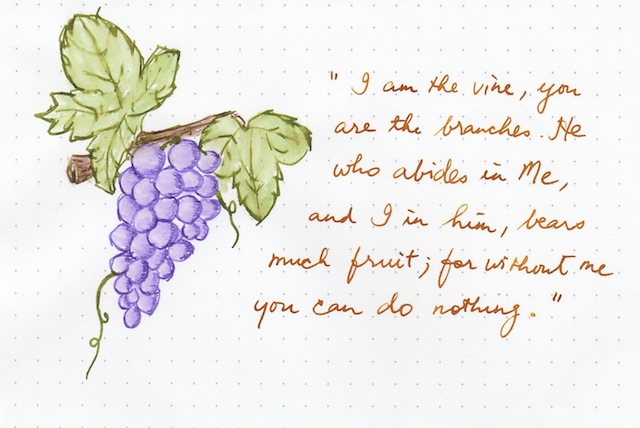 " I am the vine, you
are the branches. He
who abides in Me,
and I in him, bears
much fruit; for without me
you can do nothing. "